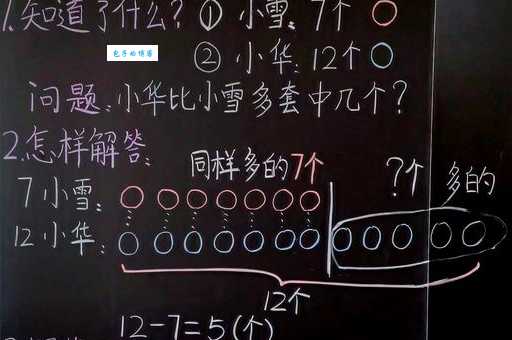 1.知道了什么? ① 小雪: 7个
② 小华: 12个
问题:小华比小雪多套中几个?
2.怎样解答:
同样多的7个
?个 多的
7小雪:
12小华:
12个
12-7=5(个)